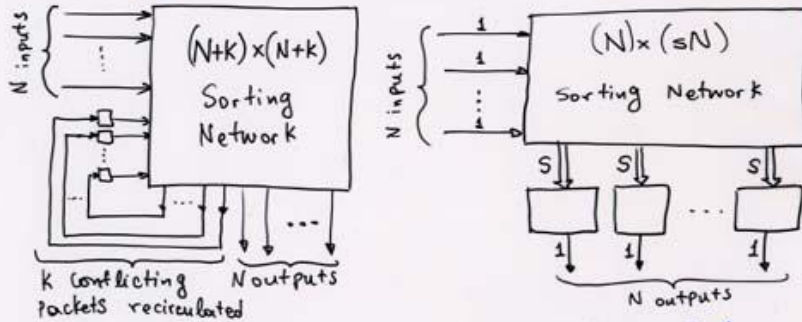 N inputs
(N+K) x (N+K)
Sorting
Network
K conflicting
packets recirculated
N outputs
N inputs
1
1
1
(N) x (sN)
Sorting Network
S
S
S
1
1
1
N outputs